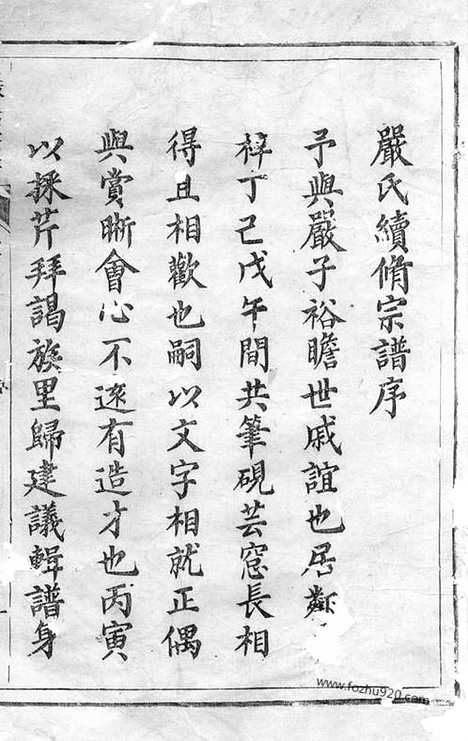 嚴氏續脩宗譜序
予與嚴子裕瞻世戚誼也居鄰
梓丁己戊午間共筆硯芸窓長相
得且相歡也嗣以文字相就正偶
與賞晰會心不遠有造才也丙寅
以採芹拜謁族里歸建議輯譜身
www.fozhu920.com